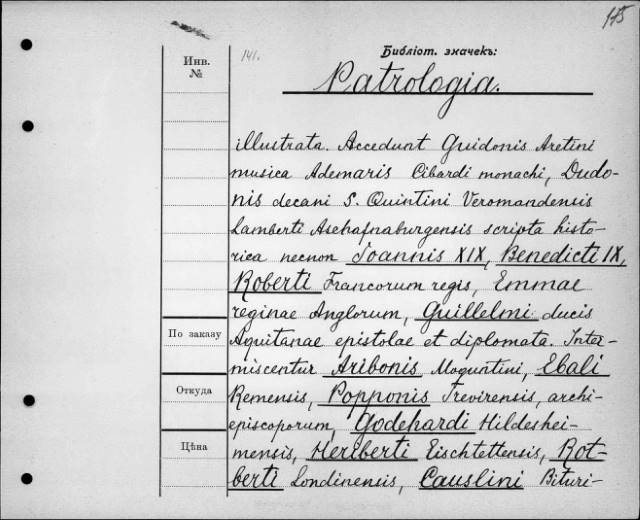 175
Инв.
№
141.
Библіот. значекъ:
Patrologia.
illustrata. Accedunt Guidonis Aretini
musica Ademaris Cibardi monachi, Dudo-
nis decani S. Quintini Veromandensis
Lamberti Aschafnaburgensis scripta histo-
rica necnon Joannis XIX, Benedicti IX,
Roberti Francorum regis, Emmae
reginae Anglorum, Guillelmi ducis
По заказу
Aquitanae epistolae et diplomata. Inter-
miscentur Aribonis Moguntini, Ebali
Откуда
Remensis, Popponis Trevirensis, archi-
episcoporum, Godehardi Hildeshei-
Цѣна
mensis, Heriberti Eischtettensis, Rot-
berti Londinensis, Causlini Bituri-